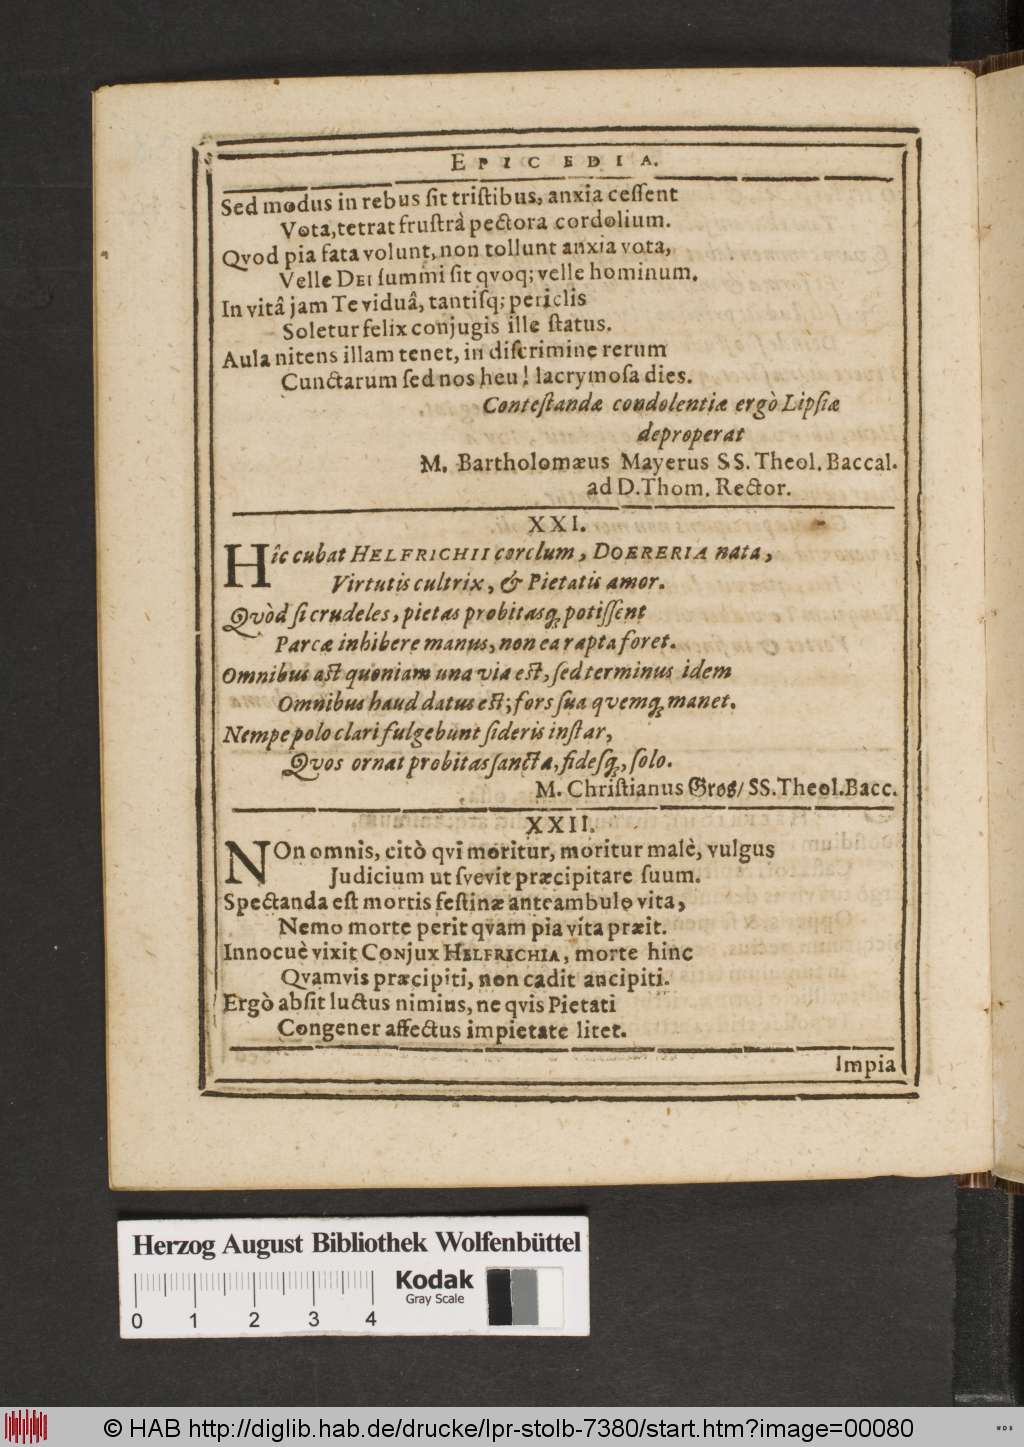 EPICEDIA.
Sed modus in rebus sit tristibus, anxia cessent
Vota, tetrat frustrà pectora cordolium.
Qvod pia fata volunt, non tollunt anxia vota,
Velle DEI summi sit qvoq; velle hominum.
In vitâ jam Te viduâ, tantisq; periclis
Soletur felix conjugis ille status.
Aula nitens illam tenet, in discrimine rerum
Cunctarum sed nos heu! lacrymosa dies.
Contestandæ condolentiæ ergò Lipsiæ
deproperat
M. Bartholomæus Mayerus SS. Theol. Baccal.
ad D. Thom. Rector.
XXI.
HIc cubat HELFRICHII corclum, DOERERIA nata,
Virtutis cultrix, & Pietatis amor.
Qvòd si crudeles, pietas probitasq; potissent
Parcæ inhibere manus, non ea rapta foret.
Omnibus ast quoniam una via est, sed terminus idem
Omnibus haud datus est; fors sua qvemq; manet.
Nempe polo clari fulgebunt sideris instar,
Qvos ornat probitas sancta, fidesq;, solo.
M. Christianus Gros/ SS. Theol. Bacc.
XXII.
NOn omnis, citò qvi moritur, moritur malè, vulgus
Judicium ut svevit præcipitare suum.
Spectanda est mortis festinæ anteambulo vita,
Nemo morte perit qvam pia vita præit.
Innocuè vixit CONjux HELFRICHIA, morte hinc
Qvamvis præcipiti, non cadit ancipiti.
Ergò absit luctus nimius, ne qvis Pietati
Congener affectus impietate litet.
Impia
Herzog August Bibliothek Wolfenbüttel
Kodak
Gray Scale
0 1 2 3 4
© HAB http://diglib.hab.de/drucke/lpr-stolb-7380/start.htm?image=00080